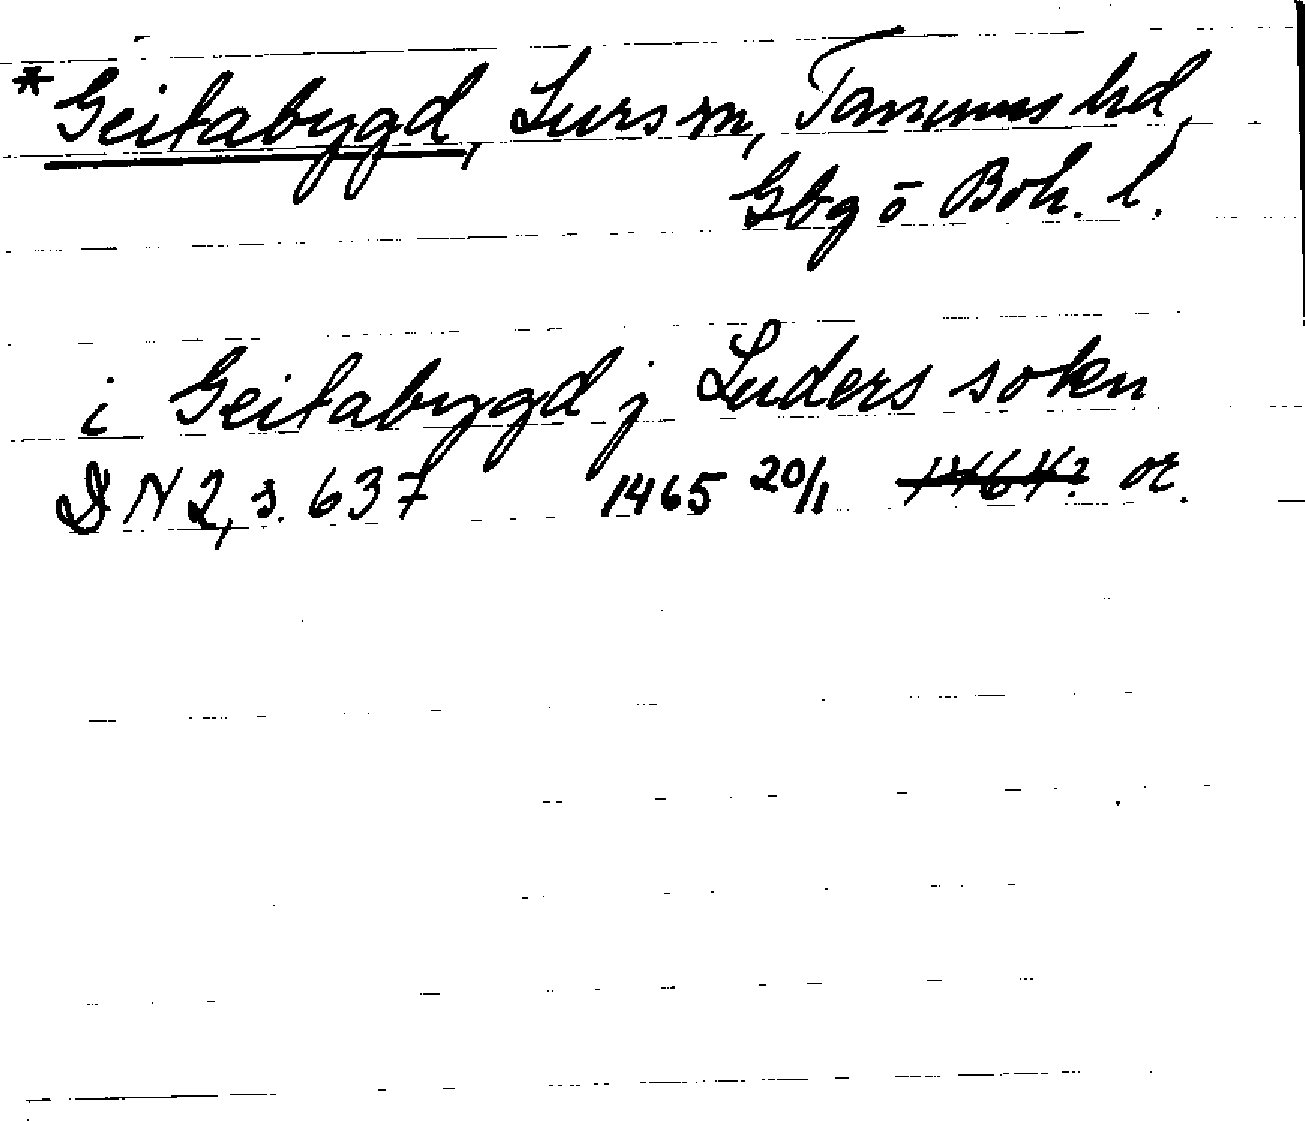 *Geitabygd, Lurs sn, Tanums hd,
Gbg ō Boh. l.
i Geitabygd j Luders sokn
DN 2, s. 637 1465 20/1 1464? or.